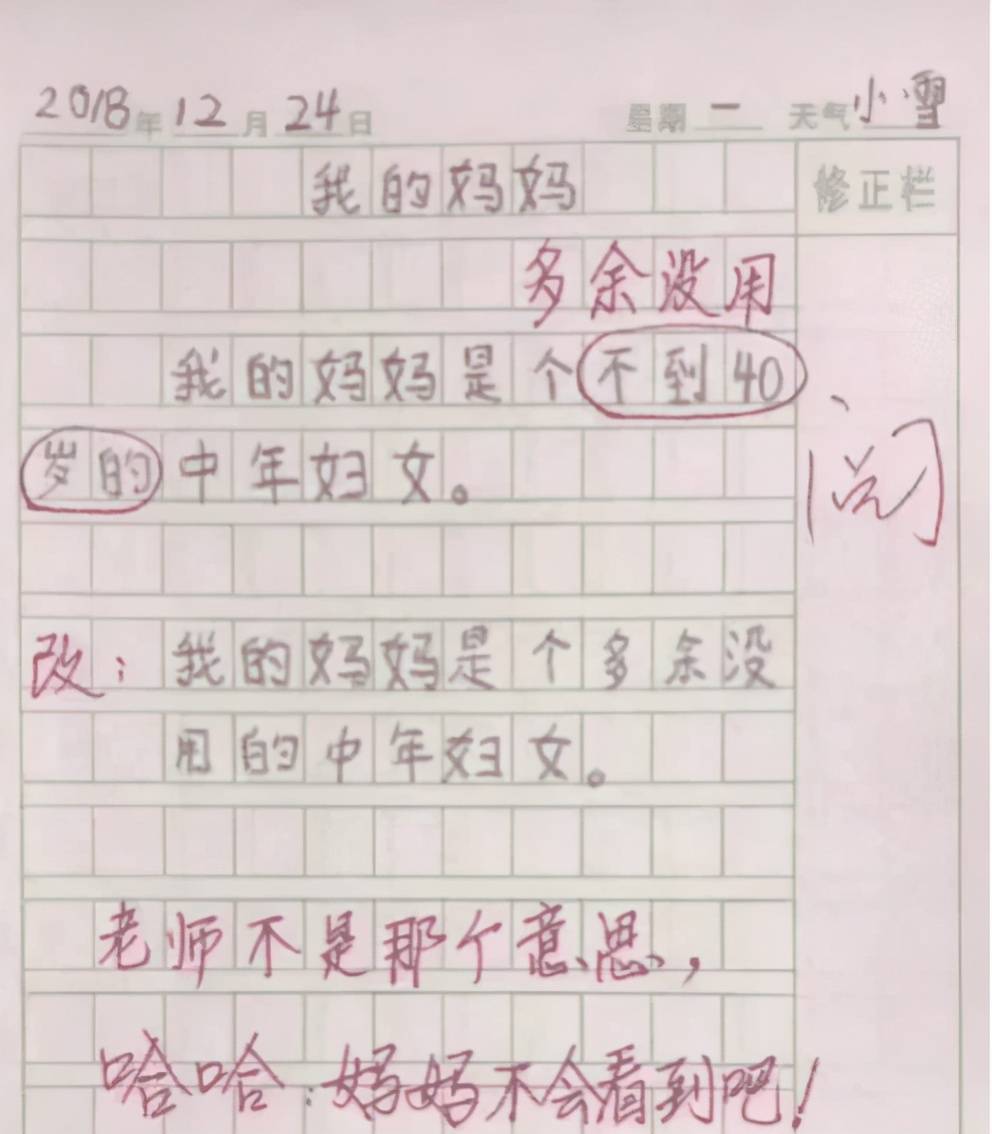 2018年12月24日 星期一 天气小雪
我的妈妈 修正栏
多余没用
我的妈妈是个不到40
岁的中年妇女。
阅
改：我的妈妈是个多余没
用的中年妇女。
老师不是那个意思，
哈哈：妈妈不会看到吧！